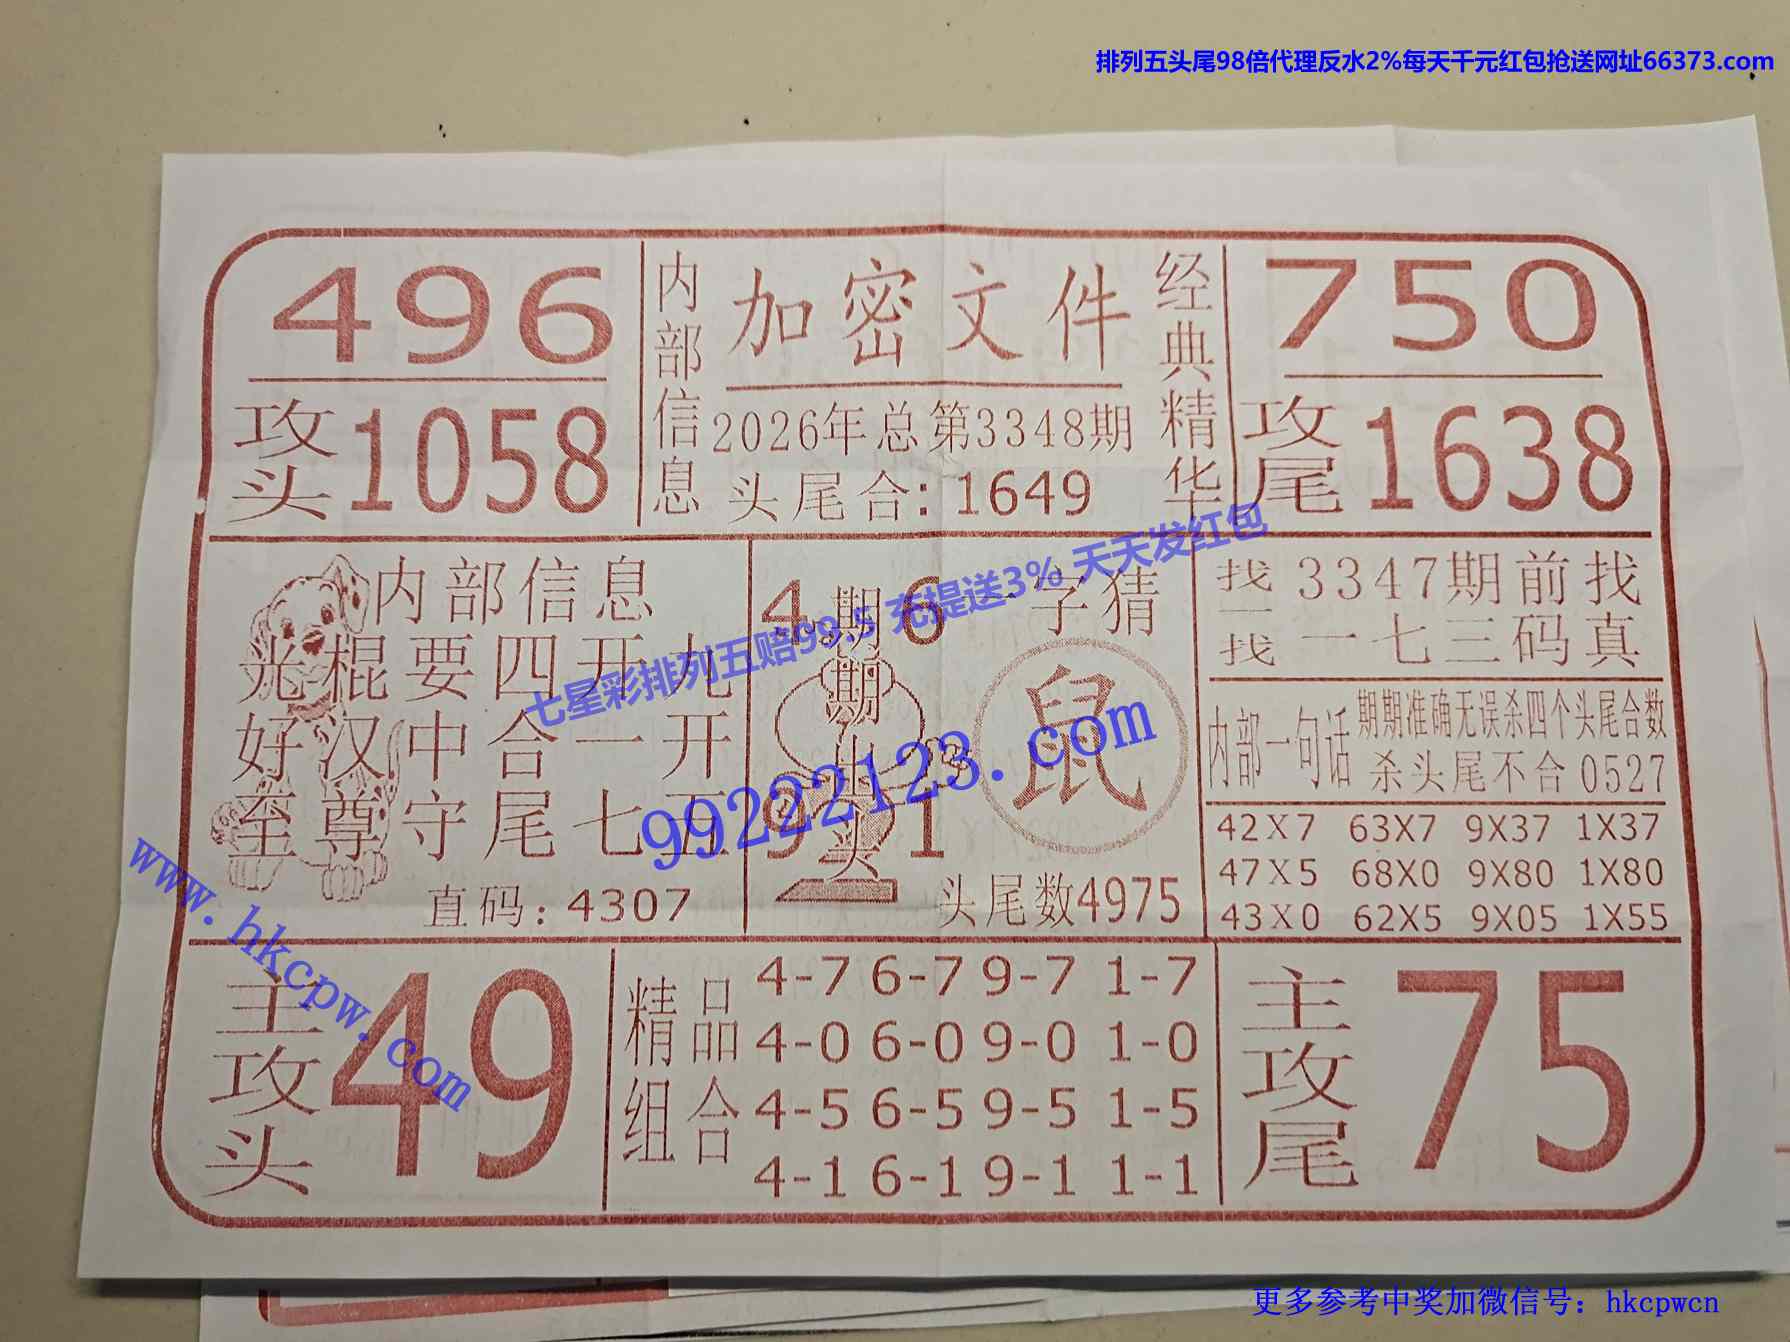 排列五头尾98倍代理反水2%每天千元红包抢送网址66373.com
496
攻头1058
内部信息
加密文件
2026年总第3348期
头尾合:1649
经典精华
750
攻尾1638
内部信息
光棍要四开九
好汉中合一开
至尊守尾七五
直码:4307
4 6
9 1
期期出头
一字猜
鼠
头尾数4975
找一找
3347期前找
一七三码真
内部一句话
期期准确无误杀四个头尾合数
杀头尾不合0527
42X7 63X7 9X37 1X37
47X5 68X0 9X80 1X80
43X0 62X5 9X05 1X55
七星彩排列五赔99.5 充提送3% 天天发红包
99222123.com
www.hkcpw.com
主攻头
49
精品组合
4-7 6-7 9-7 1-7
4-0 6-0 9-0 1-0
4-5 6-5 9-5 1-5
4-1 6-1 9-1 1-1
主攻尾
75
更多参考中奖加微信号: hkcpwcn